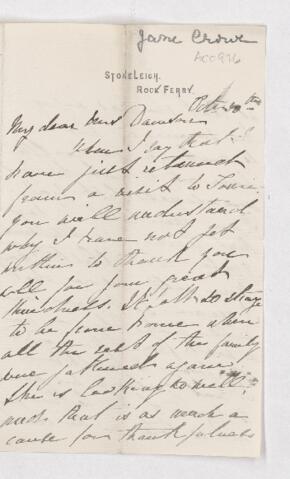 Jane Crowe
ACC976
STONELEIGH,
ROCK FERRY.
Oct
My dear Mrs Dawson
When I say that I
have just returned
from a visit to
you will understand
why I have not yet
written to thank you
all for your great
kindness. It is so strange
to be from home when
all the rest of the family
are gathered again.
She is looking so well,
and that is as much a
cause for thankfulness